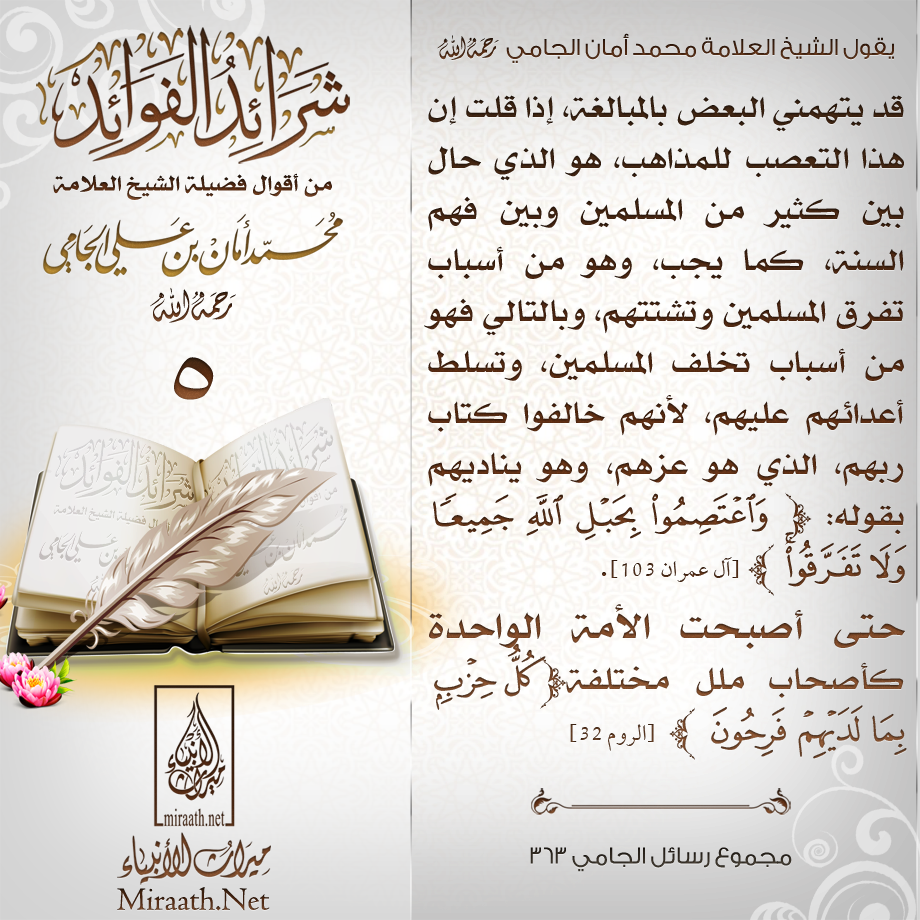 يقول الشيخ العلامة محمد أمان الجامي رَحِمَهُ اللهُ
قد يتهمني البعض بالمبالغة، إذا قلت إن
هذا التعصب للمذاهب، هو الذي حال
بين كثير من المسلمين وبين فهم
السنة، كما يجب، وهو من أسباب
تفرق المسلمين وتشتتهم، وبالتالي فهو
من أسباب تخلف المسلمين، وتسلط
أعدائهم عليهم، لأنهم خالفوا كتاب
ربهم، الذي هو عزهم، وهو يناديهم
بقوله: ﴿ وَٱعۡتَصِمُواْ بِحَبۡلِ ٱللَّهِ جَمِيعًا
وَلَا تَفَرَّقُواْۚ ﴾ [آل عمران 103].
حتى أصبحت الأمة الواحدة
كأصحاب ملل مختلفة ﴿كُلُّ حِزۡبِۭ
بِمَا لَدَيۡهِمۡ فَرِحُونَ ﴾ [الروم 32]
مجموع رسائل الجامي ٣٦٣
شَرَائِدُ الفَوَائِدِ
من أقوال فضيلة الشيخ العلامة
مُحَمَّد أَمَانْ بن عَلي الجَامِي
رَحِمَهُ اللهُ
٥
شَرَائِدُ الفَوَائِدِ
من أقوال فضيلة الشيخ العلامة
مُحَمَّد أَمَانْ بن عَلي الجَامِي
رَحِمَهُ اللهُ
ميراث الأنبياء
miraath.net
ميراث الأنبياء
Miraath.Net